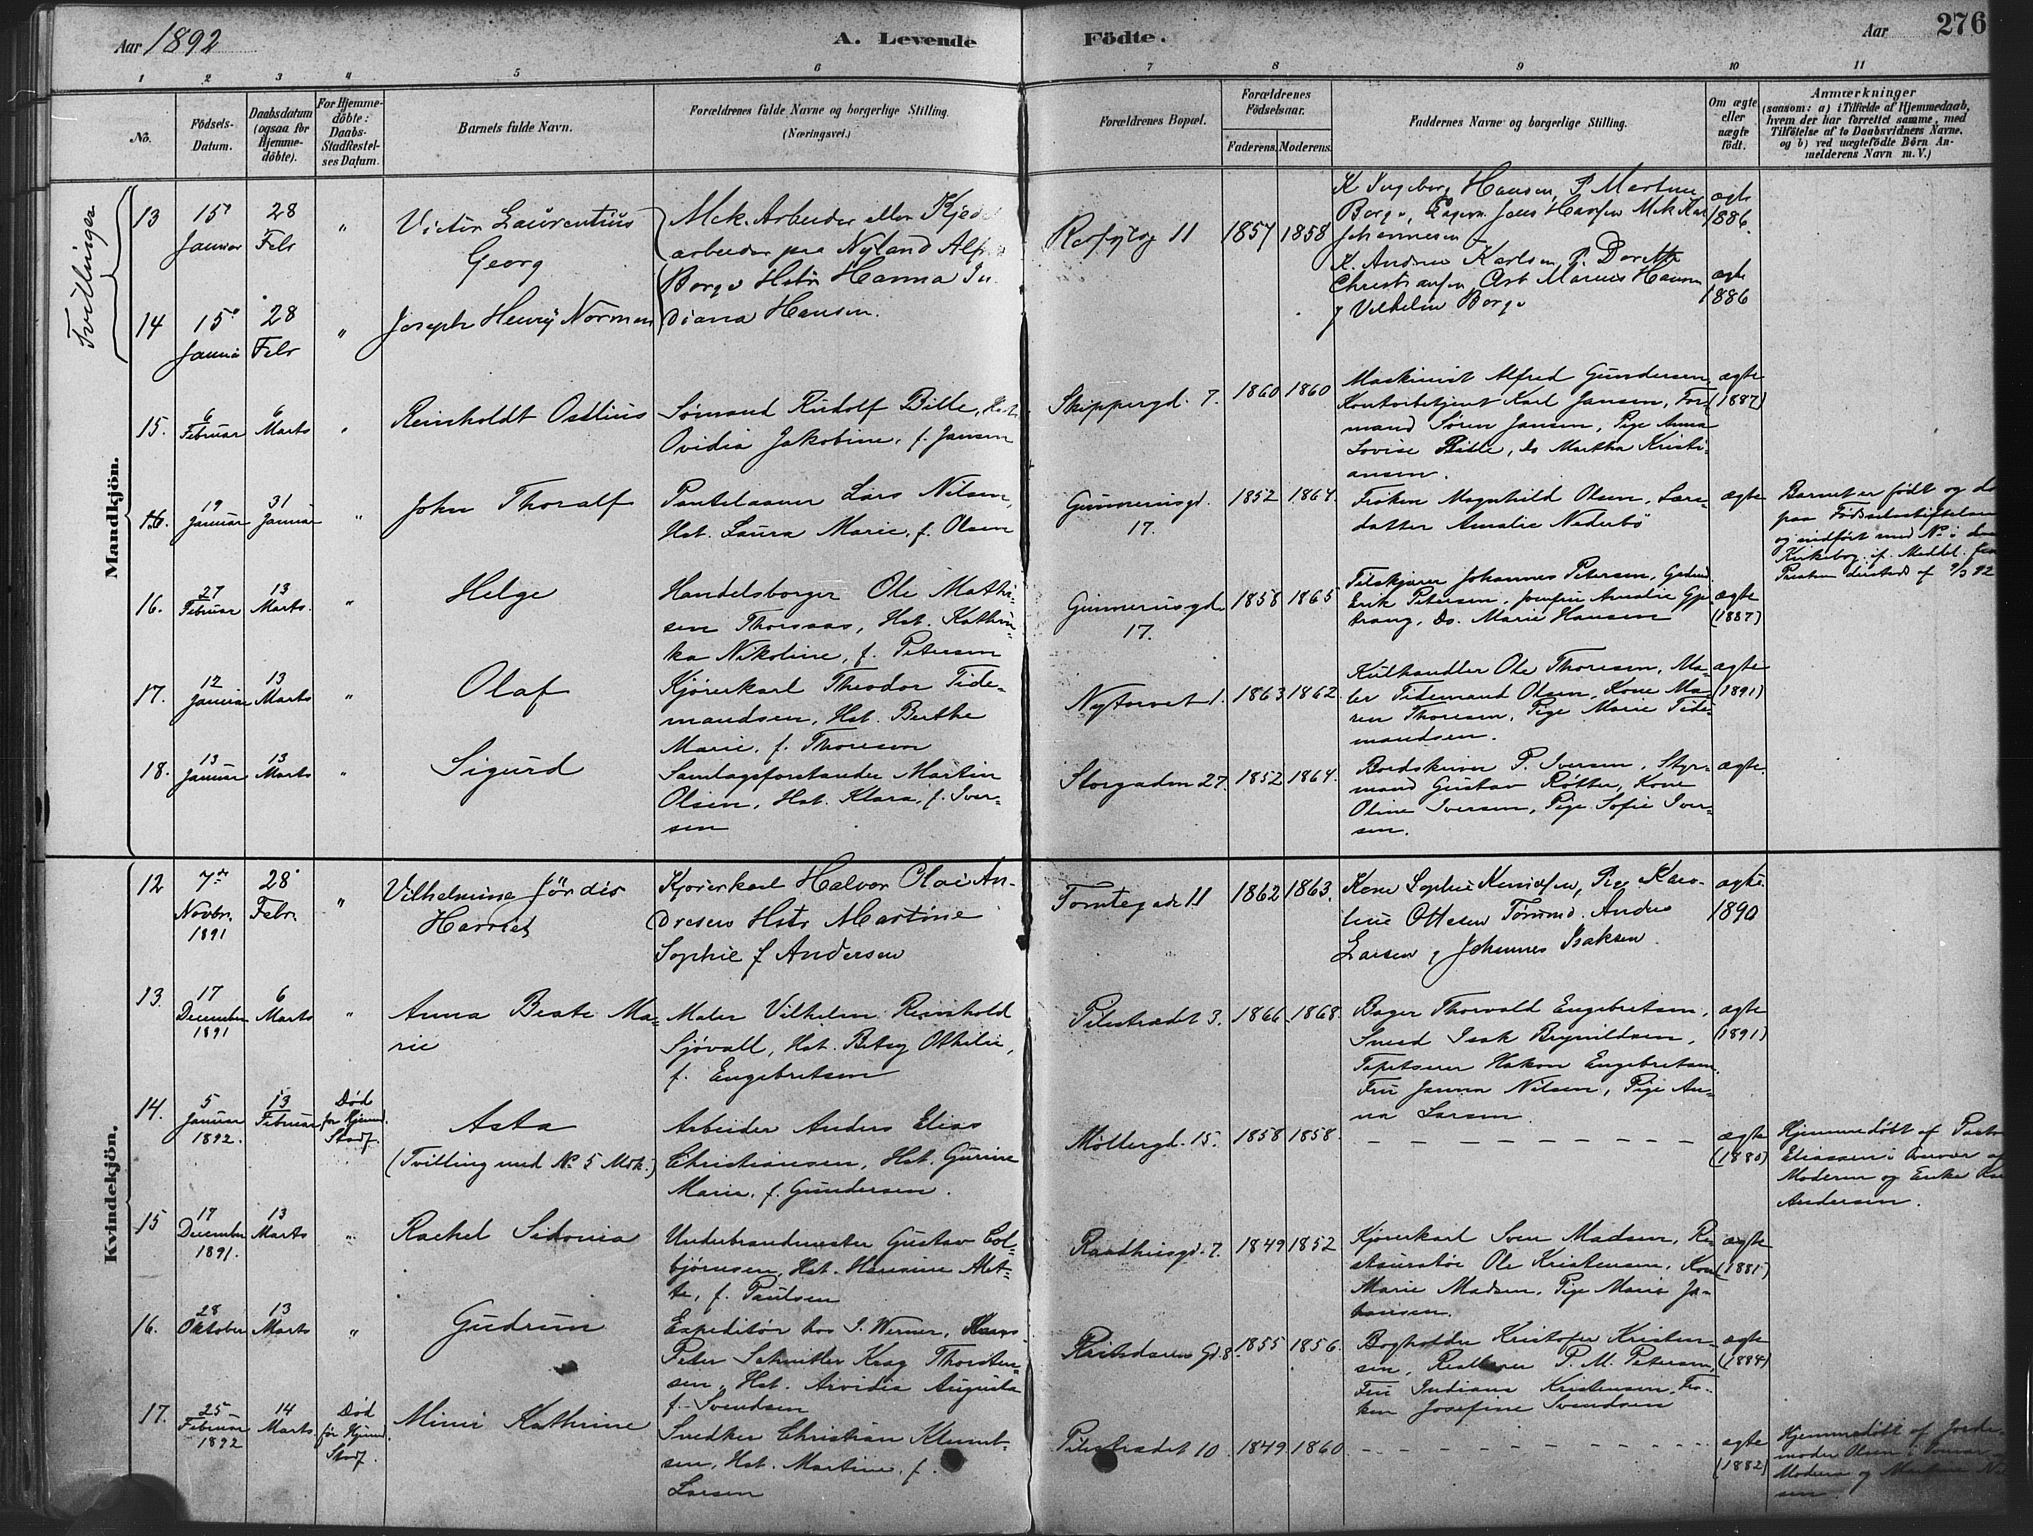 Aar 1892
A. Levende Födte.
Aar
276
1 2 3 4 5 6 7 8 9 10 11
No.
Födsels-Datum.
Daabsdatum (ogsaa for Hjemmedöbte).
For Hjemmedöbte: Daabs-Stadfæstelses Datum.
Barnets fulde Navn.
Forældrenes fulde Navne og borgerlige Stilling. (Næringsvei.)
Forældrenes Bopæl.
Forældrenes Födselsaar.
Faderens. Moderens.
Faddernes Navne og borgerlige Stilling.
Om ægte eller uægte födt.
Anmærkninger
(saasom: a) i Tilfælde af Hjemmedaab,
hvem der har forrettet samme, med
Tilföielse af to Daabsvidners Navne.
og b) ved uægtefödte Börn An-
melderens Navn m.V.)
Tvillinger
Mandkjön.
13 15 Januar 28 Febr " Victor Laurentius Georg
Mek. Arbeider eller Kjedel
arbeider paa Nyland Alfr
Borge Hstr Hanna In
diana Hansen.
11 1857 1858
K Ingeborg Hansen, P Martin
Johannesen
ægte 1886.
14 15 Januar 28 Febr " Joseph Henry Norman
K. Andrea Karlsen, P. Dorthe
Christiansen Arb Marius Hansen
g Vilhelm Borge
ægte 1886
15. 6 Februar 6 Marts " Reinholdt Ostlius
Sømand Rudolf Bille, Hst.
Ovidia Jakobine, f. Jansen
Skippergd. 7. 1860 1860
Maskinist Alfred Gundersen
Kontorbetjent Karl Jansen, For
mand Søren Jansen, Pige Anna
Lovise Bille, ds Martha Kristi-
ansen.
ægte (1887)
16. 19 Januar 31 Januar " John Thoralf
Lars Nilsen,
Hst. Laura Marie, f. Olsen
Gunnerusgd. 17. 1852 1864.
Frøken Magnhild Olsen, Lære-
datter Amalie Nederbö
ægte
Barnet er født og
paa Fødselsstiftelsen
og indført med No i
Kirkebog if. Meddel. fra
Præsten dersteds af 9/3 92
16. 27 Februar 13 Marts. " Helge
Handelsborger Ole Mathi-
sen Thorsaas, Hst. Kathrin-
ka Nikoline, f. Petersen
Gunnerusgd. 17. 1858 1865
Johannes Petersen,
Erik Petersen, Josefine Amalie
ds. Marie Hansen
ægte (1887)
17. 12 Januar 13 Marts " Olaf
Kjørerkarl Theodor Tide-
mandsen, Hst. Berthe
Marie, f. Thoresen
Nytorvet 1. 1863 1862.
Kulhandler Ole Thoresen, Ma-
ler Tidemand Olsen, Kone Ma-
ren Thoresen, Pige Marie Tide-
mandsen.
ægte (1891)
18. 13 Januar 13 Marts " Sigurd
Samlagsforstander Martin
Olsen, Hst. Klara, f. Iver-
sen
Storgaden 27. 1852 1864.
P. Iversen, Styr-
mand Gustav Røtter, Kone
Oline Iversen, Pige Sofie Iver-
sen.
ægte.
Kvindekjön.
12 7de Novbr. 1891 28 Febr. " Vilhelmine Jørdis Harriet
Kjørerkarl Halvor Olai An-
dresen Hstr Martine
Sophie f Andersen
Tomtegade 11 1862 1863.
Kone Sophie Knudsen, Pige Karo-
line Ottesen Tømmd. Anders
Larsen g Johannes Isaksen.
ægte 1890
13. 17 December 1891 6 Marts " Anna Beate Ma-
rie
Maler Vilhelm Reinhold
Sjøvall, Hst. Betsy Othilie,
f. Engebretsen
Pilestrædet 3. 1866 1868.
Bager Thorvald Engebretsen,
Smed Isak Brynildsen,
Tapetserer Hakon Engebretsen
Fru Janna Nilsen, Pige An-
na Larsen.
ægte (1891)
14. 5 Januar 1892. 13 Februar Død før Hjemd. Stadf.
Asta
(Tvilling med No 5 Mdk.)
Arbeider Anders Elias
Christiansen, Hst. Gurine
Marie, f. Gundersen.
Møllergd. 15. 1858 1858.
ægte (1880)
Hjemmedøbt af Pastor
Eliassen i Overvær af
Moderen og Enke
Andersen.
15 17 December 1891. 13 Marts " Rachel Sidonia
Underbrandmester Gustav Col-
bjørnsen, Hst. Hansine Alet-
te, f. Paulsen
Raadhusgd. 7. 1849 1852
Kjørerkarl Sven Madsen, Re-
stauratør Ole Kristensen, Kone
Marie Madsen, Pige Marie Jo-
hansen.
ægte (1881)
16. 28 Oktober 13 Marts " Gudrun
Expeditør hos J. Werner, Hans
Peter Schnitler Krag Thorsten-
sen, Hst. Arvidia Augusta
f. Svendsen
Gd. 8. 1855 1856.
Bogholder Kristofer Kristen-
sen, P. M. Petersen,
Fru Indiana Kristensen, Frø-
ken Josefine Svendsen
ægte (1884)
17. 25 Februar 1892 14 Marts Død før Hjemd. Stadf.
Mimi Kathrine
Snedker Christian Klemet-
sen, Hst. Martine, f.
Larsen
Pilestrædet 10. 1849 1860
ægte (1882)
Hjemmedøbt af Jorde-
moder Olsen i
Moderen og Martine
sen.